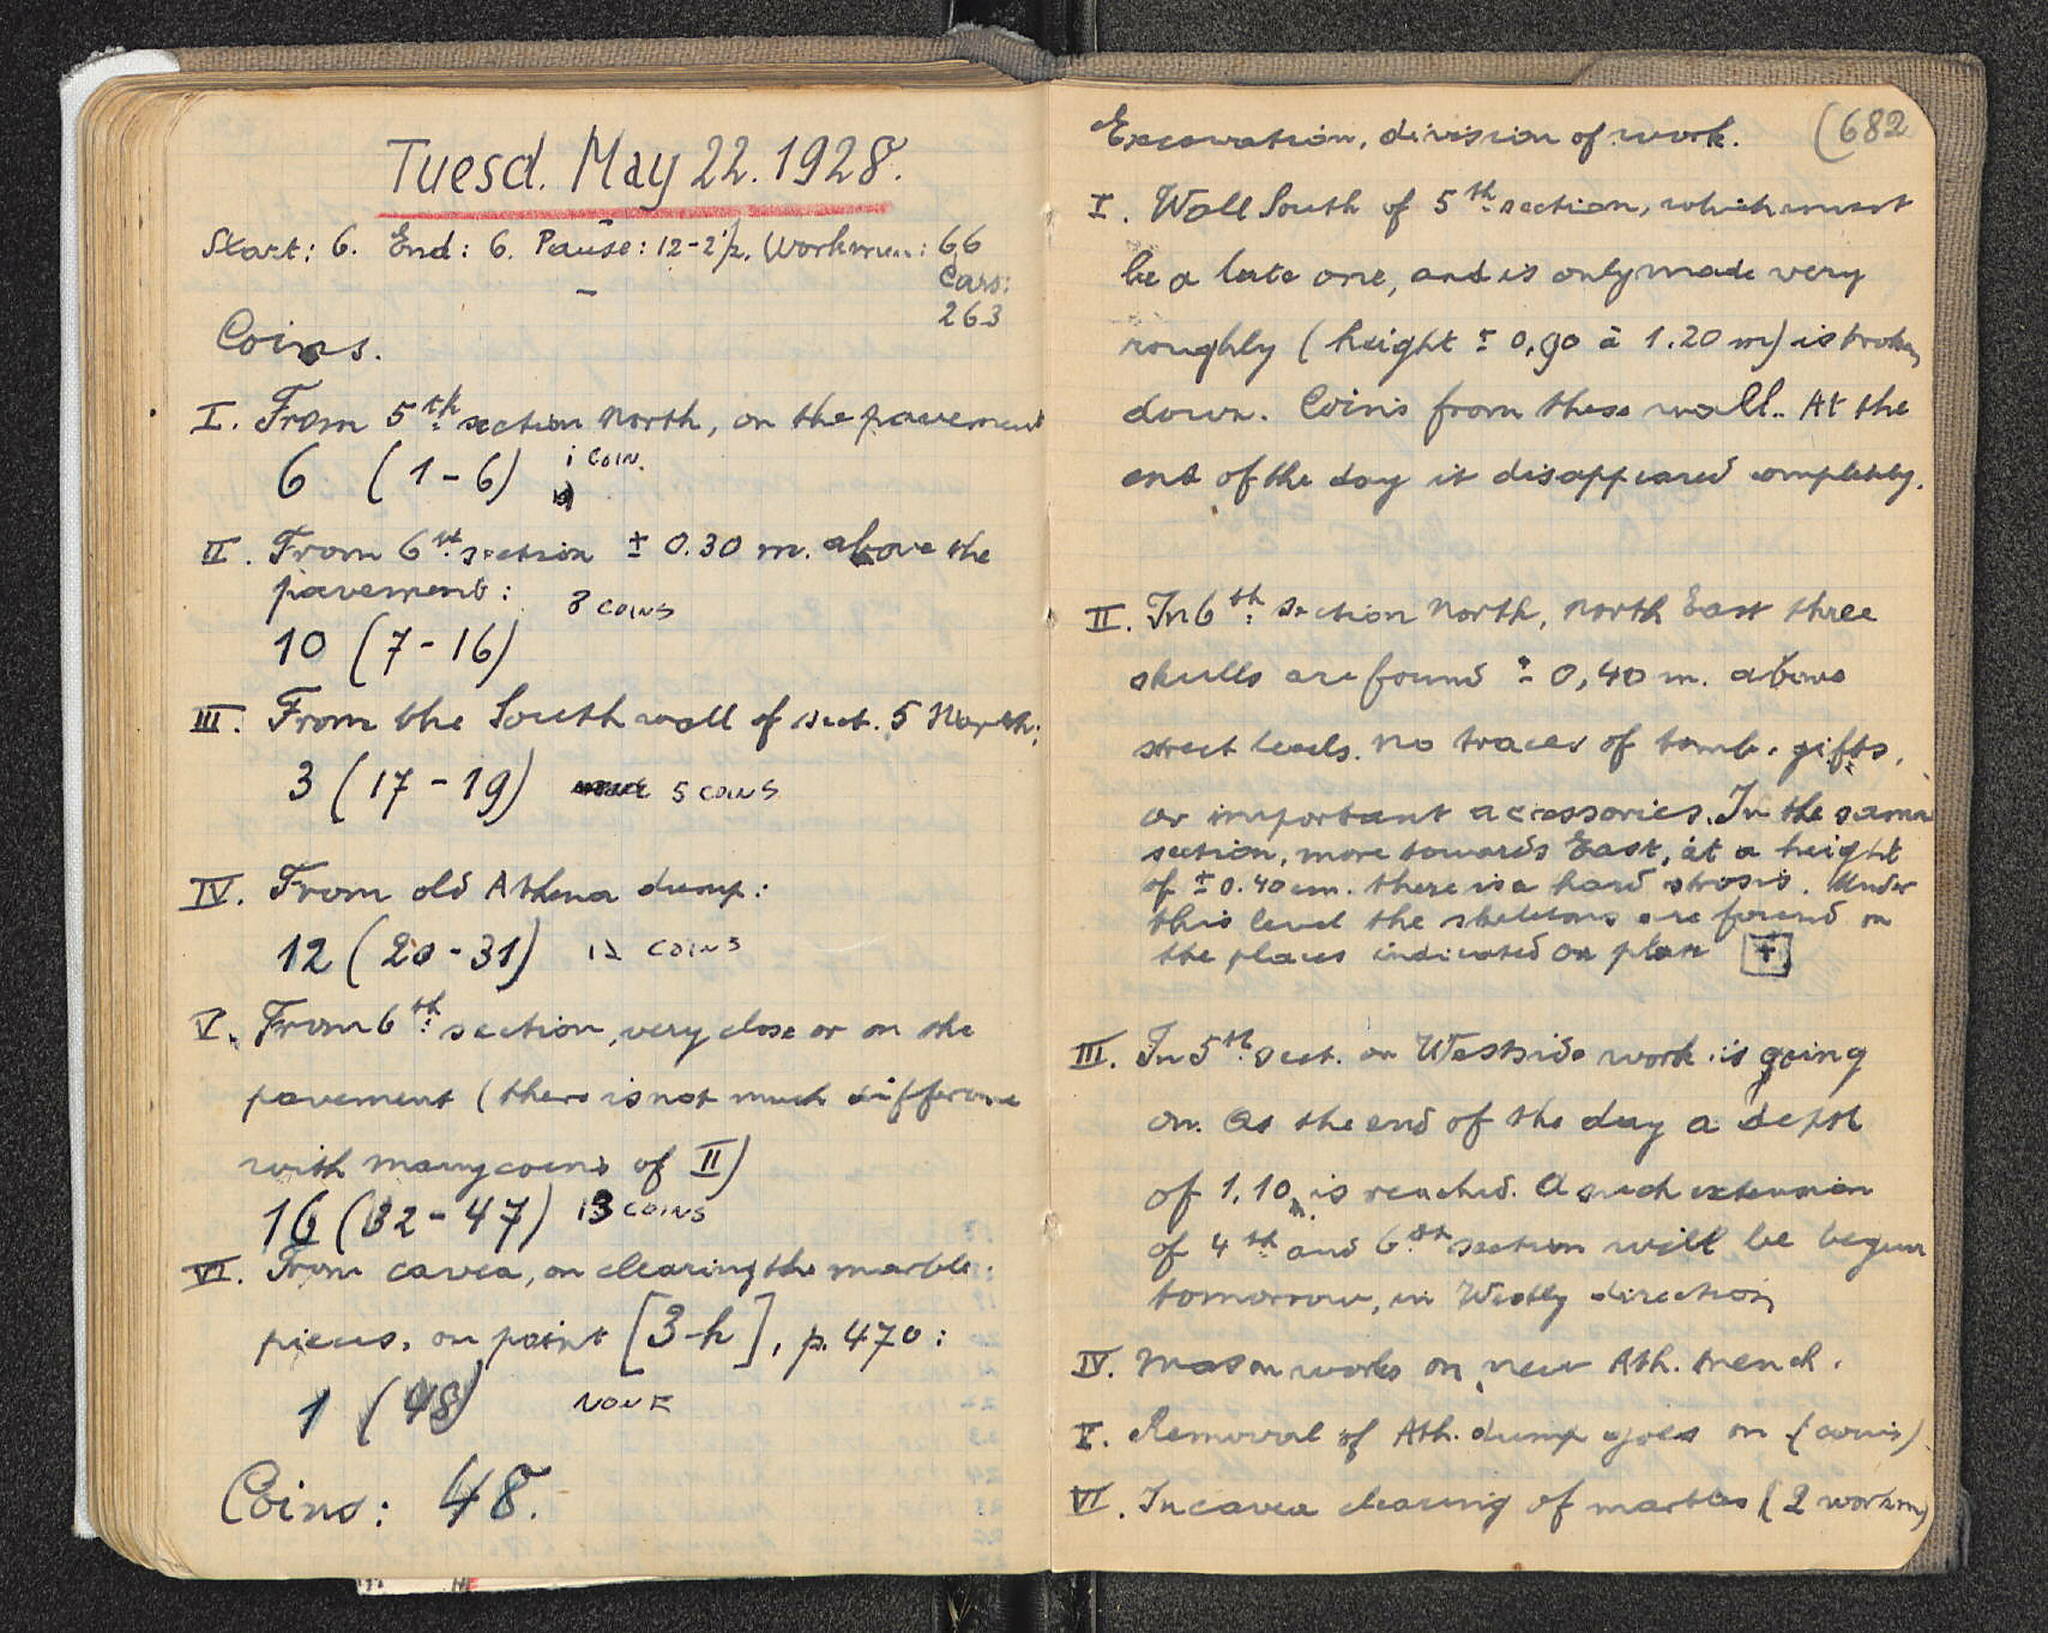 Tuesd. May 22. 1928.
Start: 6. End: 6. Pause: 12-2½. Workmen: 66
Cars:
263
Coins.
I. From 5th section North, on the pavement
6 (1-6) 1 COIN.
II. From 6th section ± 0.30 m. above the
pavement: 8 COINS
10 (7-16)
III. From the South wall of sect. 5 North:
3 (17-19) 5 COINS
IV. From old Athena dump:
12 (20-31) 12 COINS
V. From 6th section, very close or on the
pavement (there is not much difference
with many coins of II)
16 (32-47) 13 COINS
VI. From cavea, on clearing the marble.
pieces, on point [3-h], p. 470:
1 (48) NONE
Coins: 48.
(682
Excavation, division of work.
I. Wall South of 5th section, which must
be a late one, and is only made very
roughly (height ± 0,90 à 1.20 m) is broken
down. Coins from these wall. At the
end of the day it disappeared completely.
II. In 6th section North, North East three
skulls are found ± 0,40 m. above
street levels. No traces of tomb. gifts,
or important accessories. In the same
section, more towards East, at a height
of ± 0.40 cm. there is a hard strosis. Under
this level the skeletons are found on
the places indicated on plan +
III. In 5th sect. on Westside work is going
on. At the end of the day a depth
of 1,10 m. is reached. A such extension
of 4th and 6th section will be begun
tomorrow, in Westly direction
IV. Mason works on new Ath. trench.
V. Removal of Ath. dump goes on (coins)
VI. In cavea clearing of marbles (2 workm)